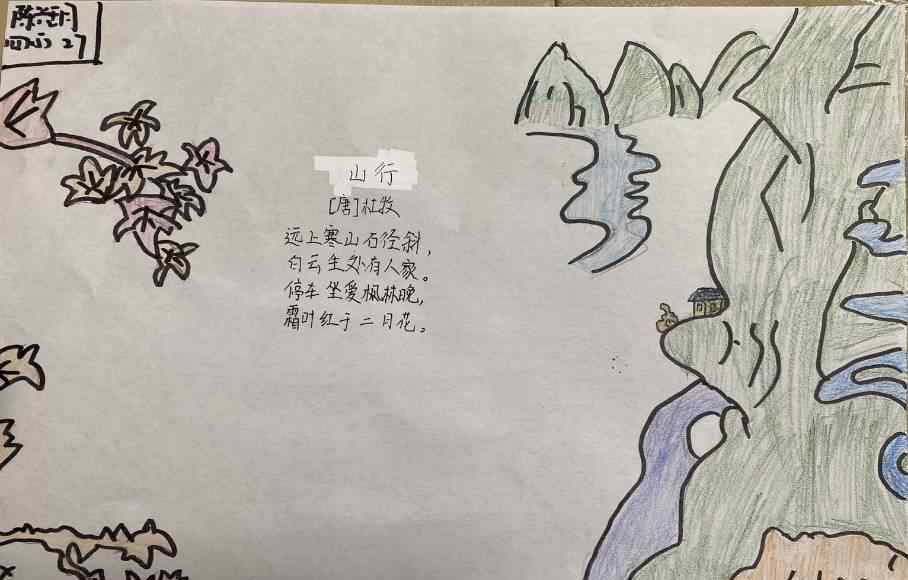 27
山行
[唐]杜牧
远上寒山石径斜，
白云生处有人家。
停车坐爱枫林晚，
霜叶红于二月花。